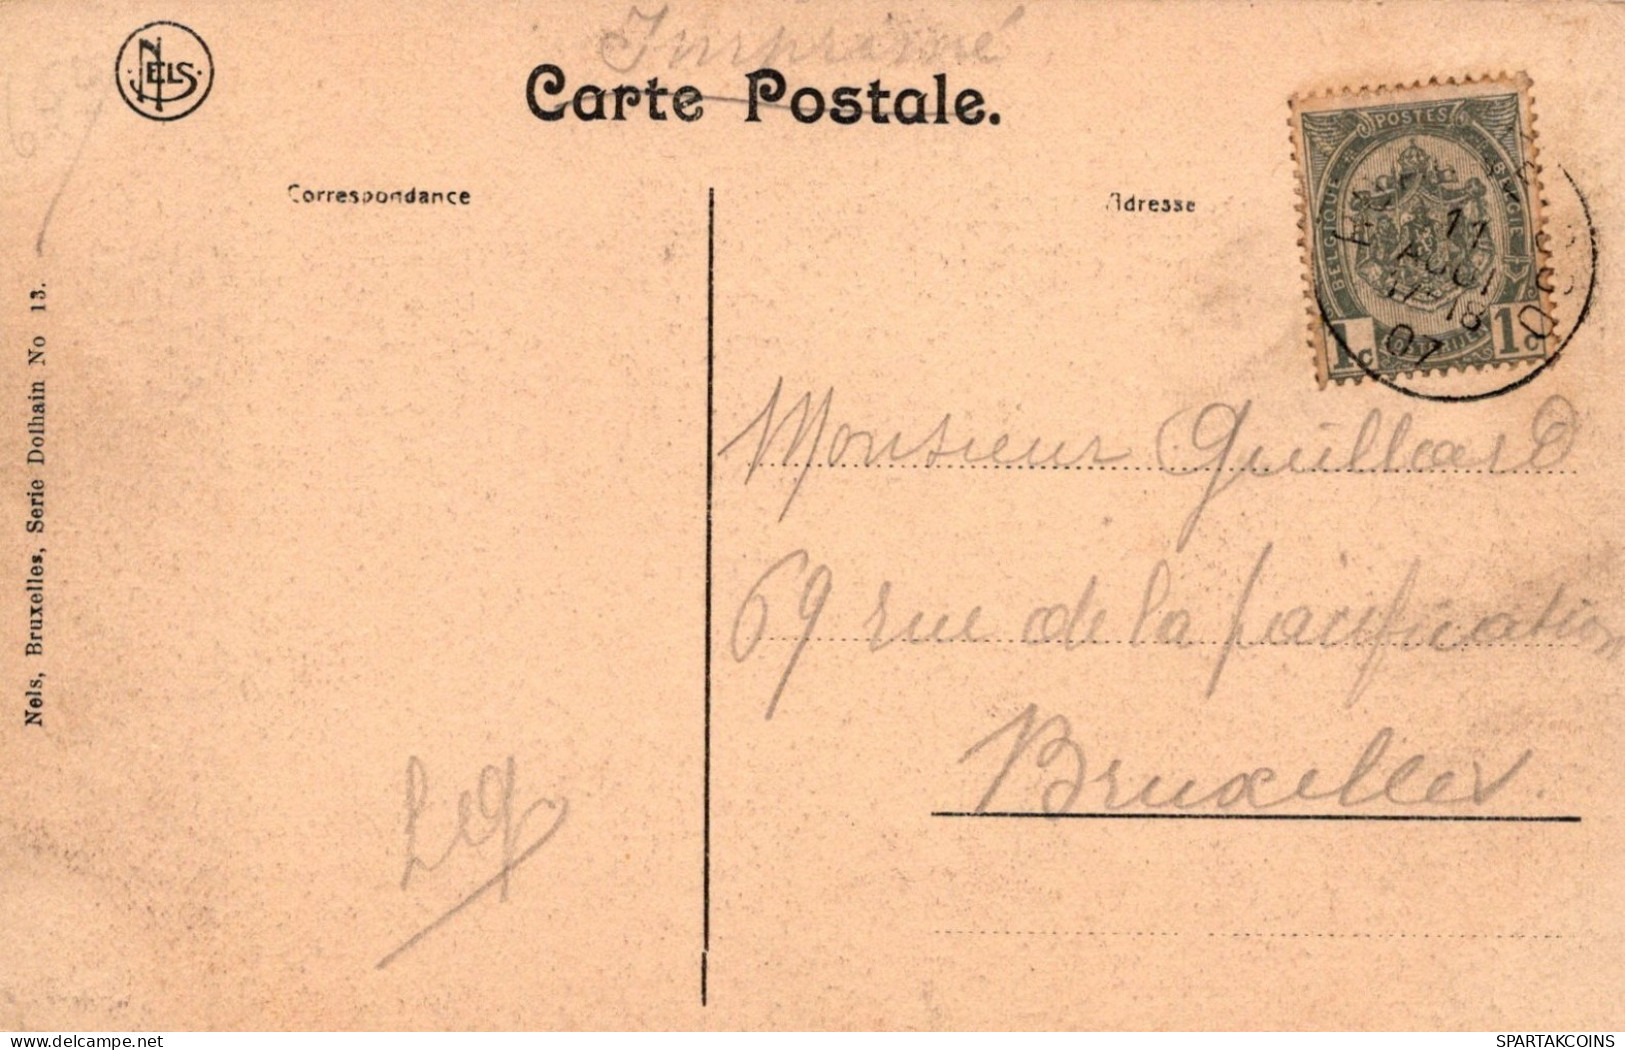 Imprimé
NELS
Carte Postale.
Correspondance
Adresse
POSTES
BELGIQUE
BELGIE
1c 1c
11
AOUT
17-18
07
Nels, Bruxelles, Serie Dolhain No 13.
Monsieur Guillard
69 rue de la pacification
Bruxelles.
SPARTAKCOINS